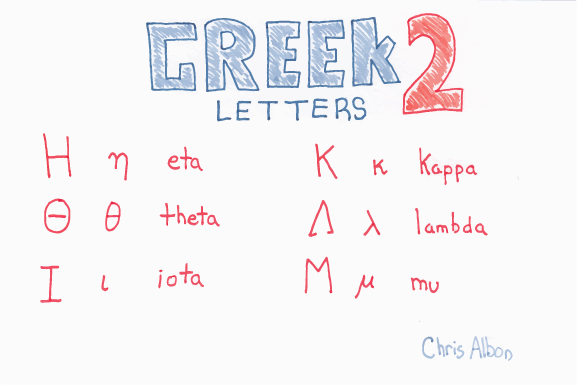 GREEK 2
LETTERS
Η η eta
Θ θ theta
Ι ι iota
Κ κ kappa
Λ λ lambda
Μ μ mu
Chris Albon